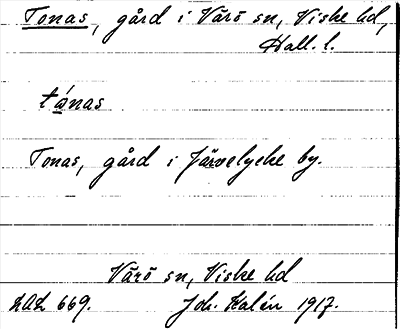 Tonas, gård i Värö sn, Viske hd,
Hall. l.
tánas
Tonas, gård i Järvelycke by.
Värö sn, Viske hd
LAL 669. Joh. Kalén 1917.